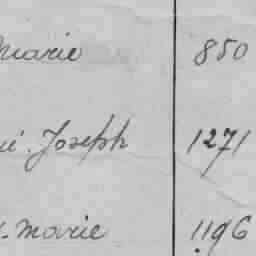 Marie 850
Joseph 1271
Marie 1196